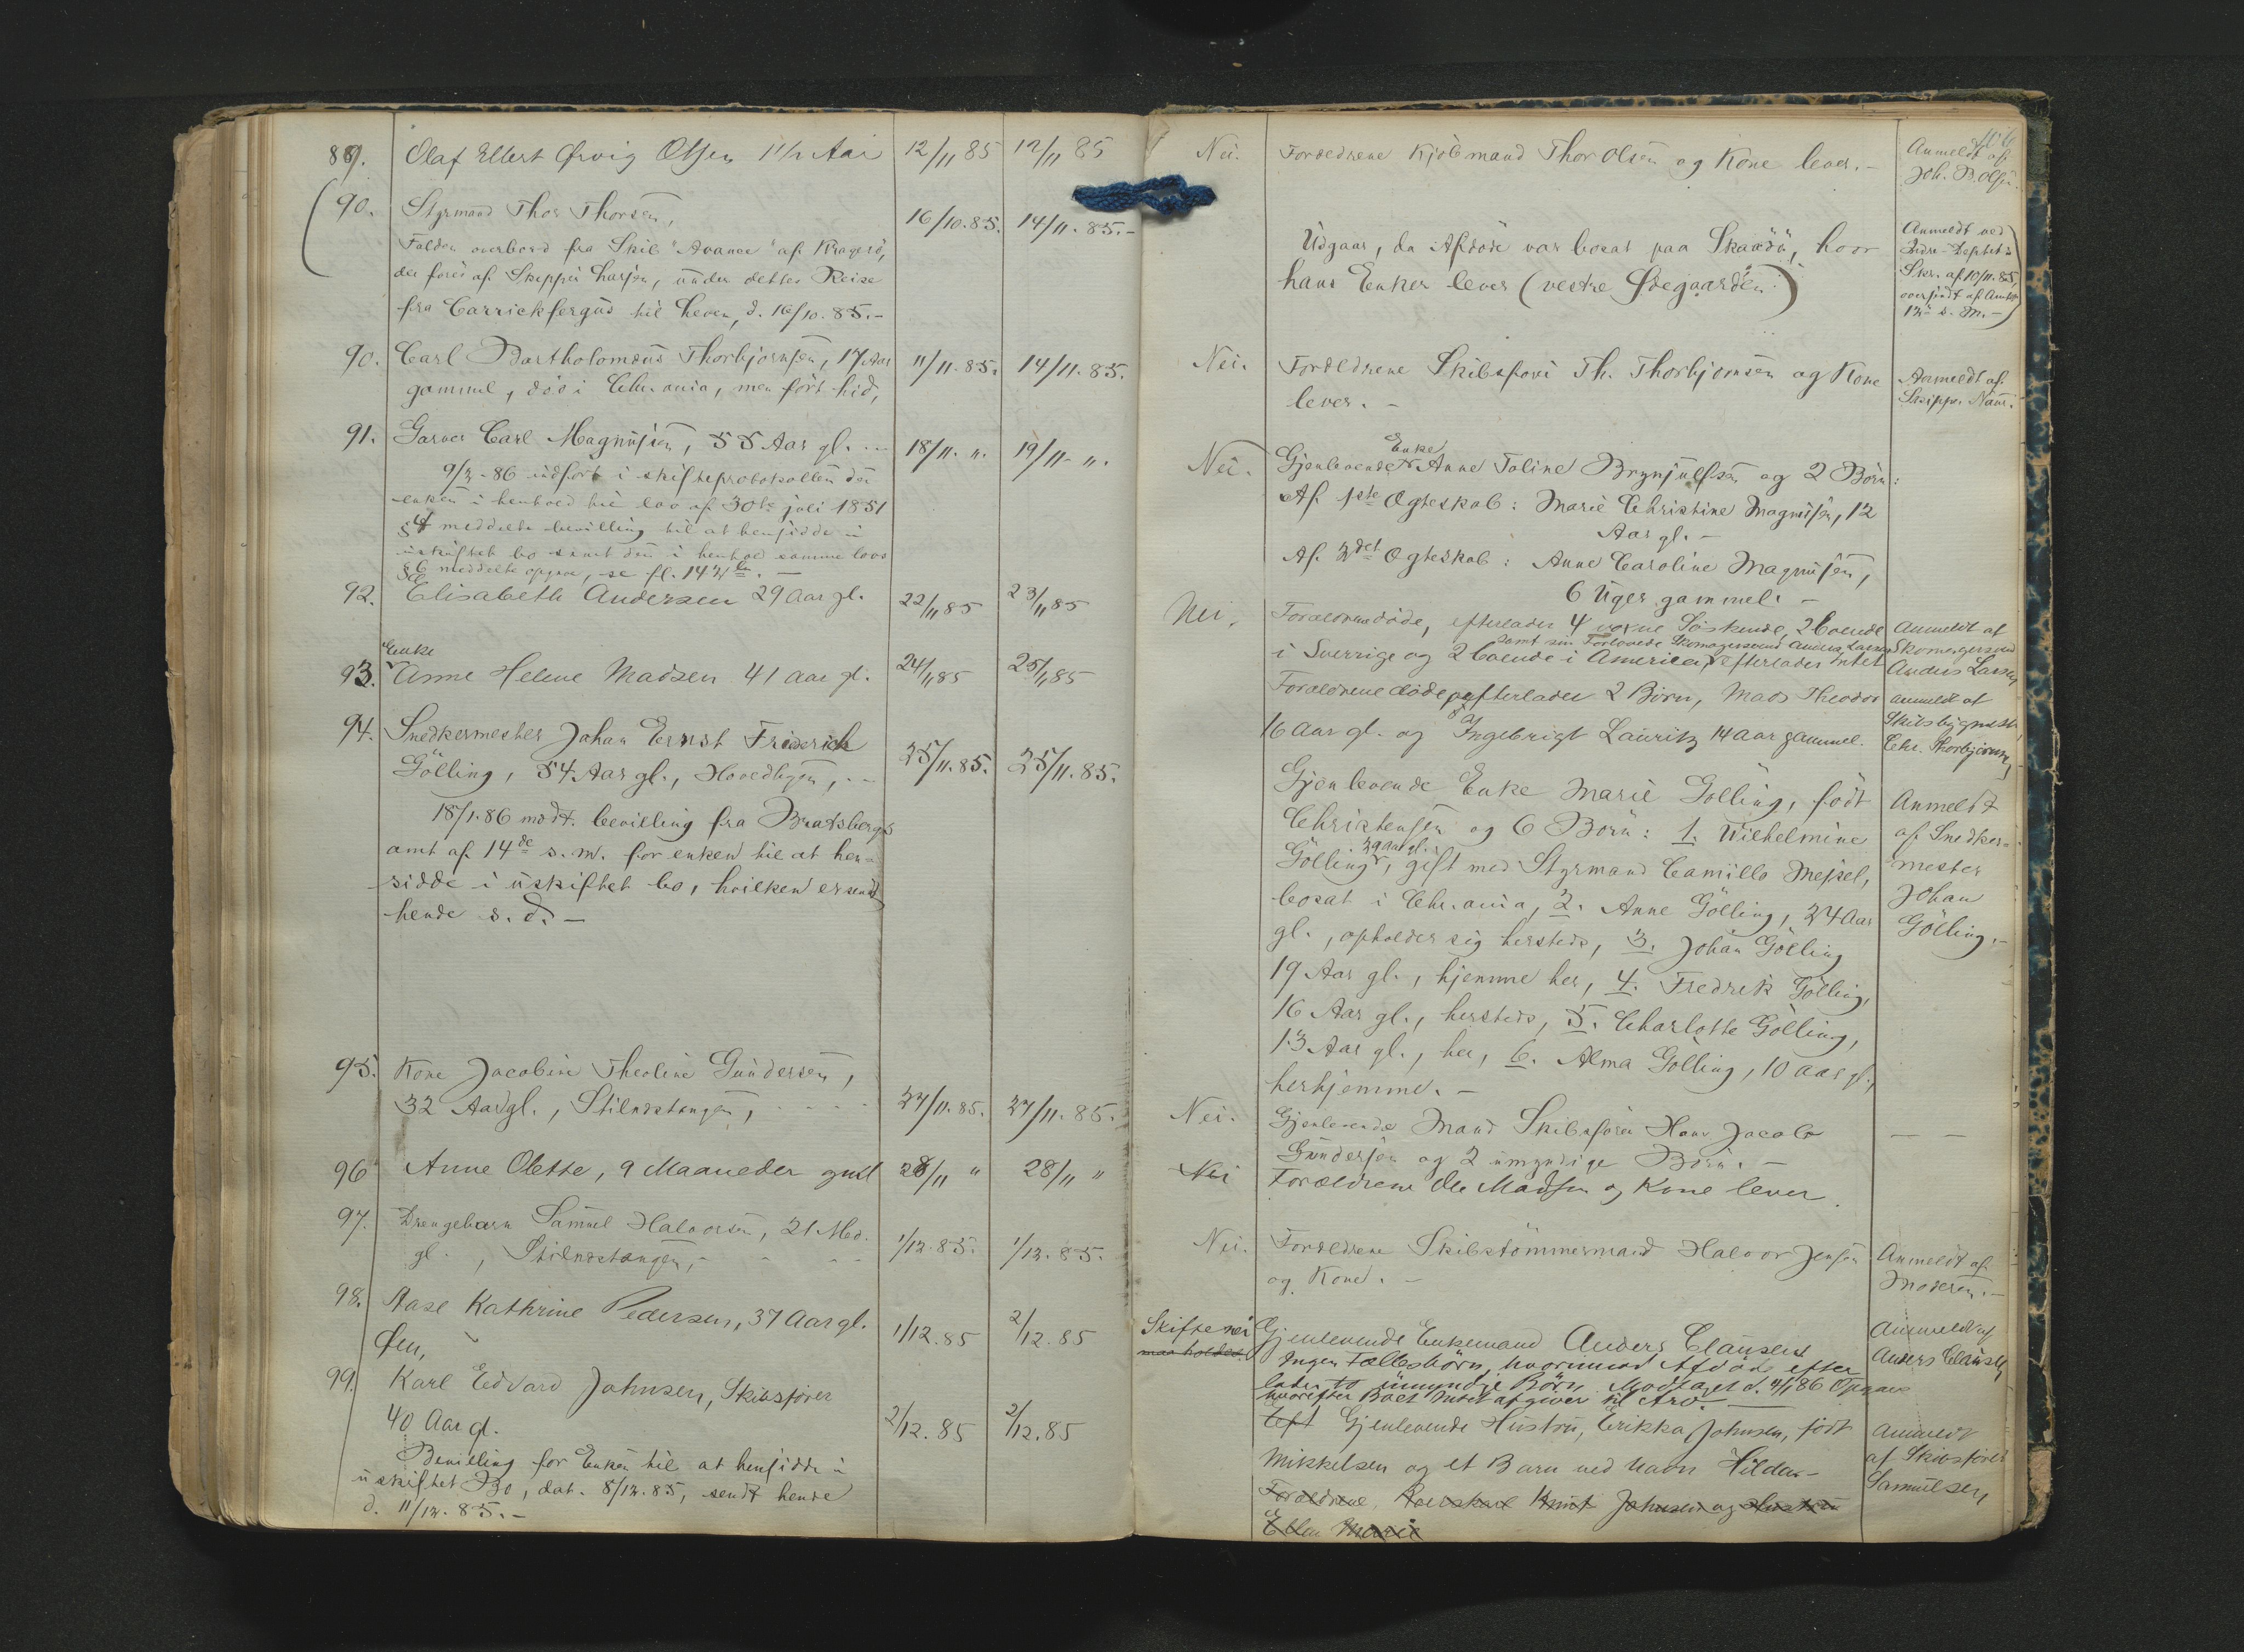 89. Olaf Ellert Ørvig Olsen 1 1/2 Aar 12/11 85 12/11 85
90. Styrmand Thor Thorsen, 16/10.85. 14/11.85.-
Falden overbord fra Skib "Avance" af Kragerö,
der föres af Skipper Larsen, under dettes Reise
fra Carrickfergus til Leven, d. 16/10.85.-
90. Carl Bartholomæus Thorbjörnsen, 17 Aar 11/11.85. 14/11.85.
gammel, död i Chr.ania, men fört hid,
91. Garver Carl Magnusen, 55 Aar gl. 18/11. ". 19/11. ".
9/2-86 udfört i skifteprotokollen den
enken i henhold til lov af 30te juli 1851
§4 meddelte bevilling til at hensidde i
uskiftet bo samt den i henhold samme lovs
§6 meddelte opgave, se fl. 142
92. Elisabeth Andersen 29 Aar gl. 22/11 85 23/11 85
Enke
93. Anne Helene Madsen 41 aar gl. 24/11 85 25/11 85
94. Snedkermester Johan Ernst Friderich
Gölling, 54 Aar gl., Hovedbyen, 25/11.85. 25/11.85.
18/1.86 modt. bevilling fra Bratsbergs
amt af 14de s.m. for enken til at hen-
sidde i uskiftet bo, hvilken er sendt
hende s.d.-
95. Kone Jacobine Theoline Gundersen,
32 Aar gl., Stilnestangen, 27/11.85. 27/11.85.
96 Anne Olette, 9 Maaneder gml 28/11 " 28/11 "
97. Drengebarn Samuel Halvorsen, 21 Md.
gl., Stilnestangen, 1/12.85. 1/12.85.
98. Aase Kathrine Pedersen, 37 Aar gl. 1/12.85 2/12.85
Øen,
99. Karl Edvard Johnsen, Skibsförer
40 Aar gl. 2/12.85 2/12.85
Bevilling for Enken til at hensidde i
uskiftet Bo, dat. 8/12.85, sendt hende
d. 11/12.85.-
Nei. Forældrene Kjöbmand Thor Olsen og Kone lever.-
Anmeldt af
Joh. B. Olsen.
Udgaar, da Afdöde var bosat paa Skaadö, hvor
hans Enke lever (vestre Ødegaarden)
Anmeldt ved
Indre-Deptet's
Skr. af 10/11.85,
oversendt af Amtet
12 s.M.-
Nei. Forældrene Skibsförer Th. Thorbjörnsen og Kone
lever.-
Anmeldt af
Skipper Næss.
Nei. Gjenlevende Enke Anne Taline Brynjulfsen og 2 Börn:
Af 1ste Ægteskab: Marie Christine Magnusen, 12
Aar gl.-
Af 2det Ægteskab: Anne Caroline Magnusen,
6 Uger gammel.-
Nei. Forældrene döde, efterlader 4 voxne Söskende, 2 boende
samt sin Forlovede Skomagersvend Anders Larsen
i Sverrige og 2 boende i America, efterlader Intet
Anmeldt af
Skomagersvend
Anders Larsen
Forældrene döde, efterlader 2 Börn, Mads Theodor
16 aar gl. og Ingebrigt Lauritz 14 aar gammel.
anmeldt af
Skibsbygmester
Chr. Thorbjörnsen
Gjenlevende Enke Marie Gölling, födt
Christensen og 6 Börn: 1. Wilhelmine
29 aar gl.
Gölling, gift med Styrmand Camillo Mejsel,
bosat i Chr.ania, 2. Anne Gölling, 24 Aar
gl., opholder sig hersteds, 3. Johan Gölling
19 Aar gl., hjemme her, 4. Fredrik Gölling,
16 Aar gl., hersteds, 5. Charlotte Gölling,
13 Aar gl., her, 6. Alma Gölling, 10 aar gl.,
her hjemme.-
Anmeldt
af Snedker-
mester
Johan
Gölling.-
Nei. Gjenlevende Mand Skibsförer Hans Jacob
Gundersen og 2 umyndige Börn.-
Nei Forældrene Ole Madsen og Kone lever.
Nei. Forældrene Skibstömmermand Halvor Jensen
og Kone.-
Anmeldt af
Moderen.-
Skifte nei
maa holdes.
Gjenlevende Enkemand Anders Clausen
Ingen Fællesbörn, hvorimod Afdöde efter
lader to umyndige Börn. Modtaget d. 4/1 86 Opgave
hvorefter Boet Intet afgiver til Arv.
Anmeldt af
Anders Clausen
Gjenlevende Hustru, Erikka Johnsen, födt
Mikkelsen og et Barn ved Navn Hilda.-
Forældrene, Knut Johnsen og Hustru
Ellen Marie
Anmeldt
af Skibsförer
Samuelsen